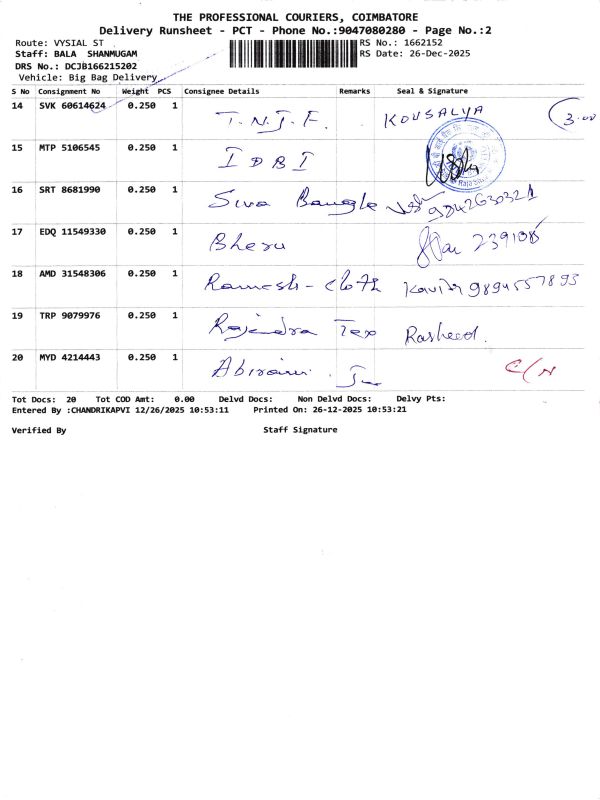 THE PROFESSIONAL COURIERS, COIMBATORE
Delivery Runsheet - PCT - Phone No.:9047080280 - Page No.:2
Route: VYSIAL ST RS No.: 1662152
Staff: BALA SHANMUGAM RS Date: 26-Dec-2025
DRS No.: DCJB166215202
Vehicle: Big Bag Delivery
S No Consignment No Weight PCS Consignee Details Remarks Seal & Signature
14 SVK 60614624 0.250 1 T.N.J.F. KOUSALYA 3.00
15 MTP 5106545 0.250 1 IDBI
16 SRT 8681990 0.250 1 Siva Bangle 9842630321
17 EDQ 11549330 0.250 1 Bheru 239108
18 AMD 31548306 0.250 1 Ramesh-cloth Kavin 9894557893
19 TRP 9079976 0.250 1 Rajendra Tex Rasheed.
20 MYD 4214443 0.250 1 Abirami C/N
Tot Docs: 20 Tot COD Amt: 0.00 Delvd Docs: Non Delvd Docs: Delvy Pts:
Entered By :CHANDRIKAPVI 12/26/2025 10:53:11 Printed On: 26-12-2025 10:53:21
Verified By Staff Signature